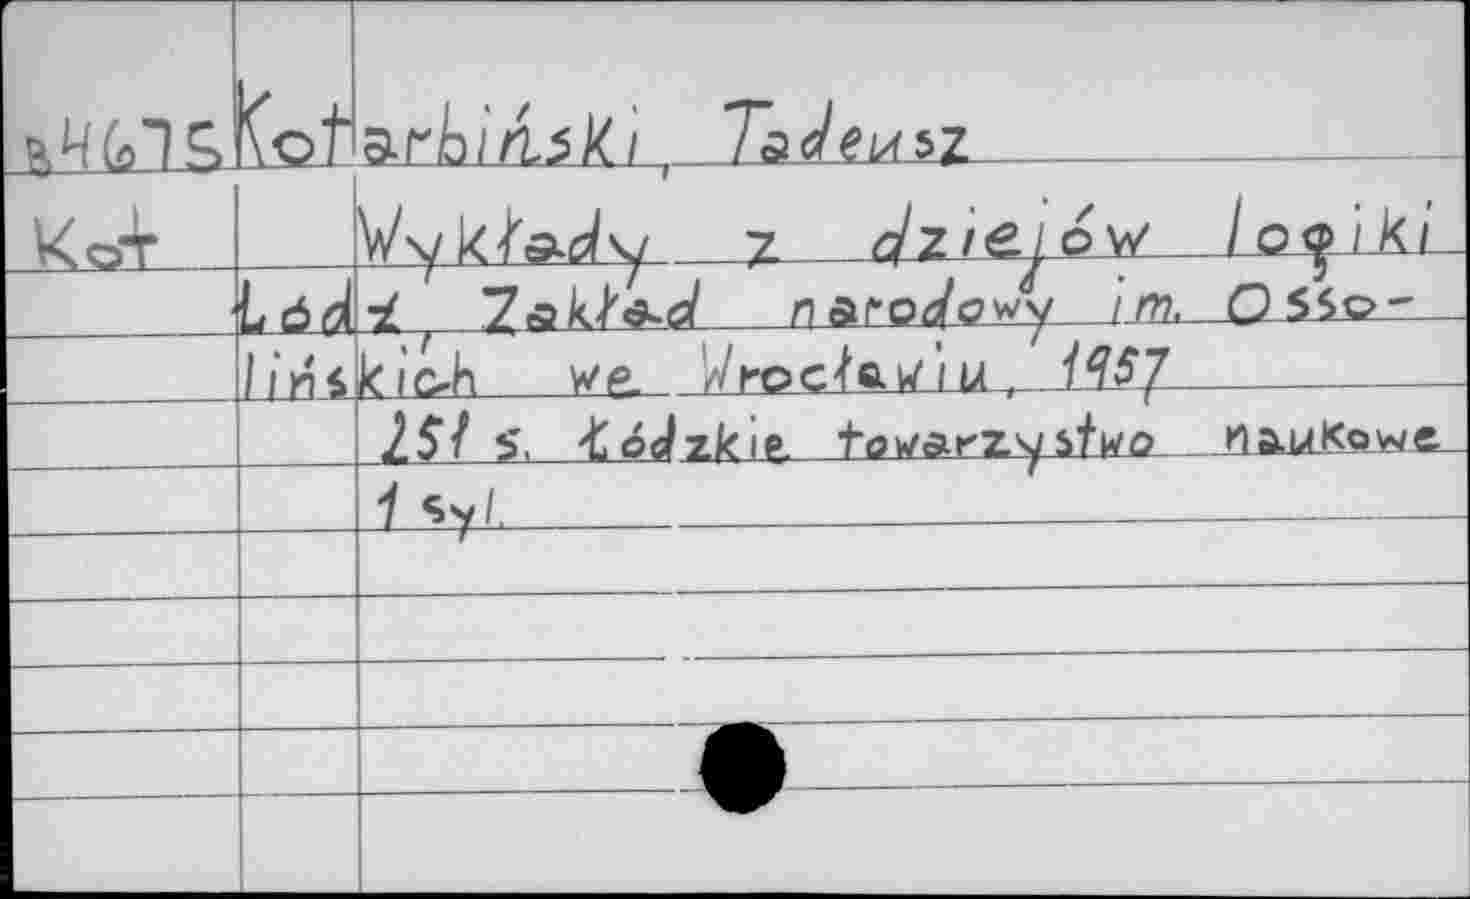 Kotarbiński, Tadeusz
Kot Wykłady z dziejów logiki
Łódź, Zakład narodowy im. Osso-
lińskich we Wrocławiu, 1957
251 s. Łódzkie towarzystwo naukowe
1 syl.